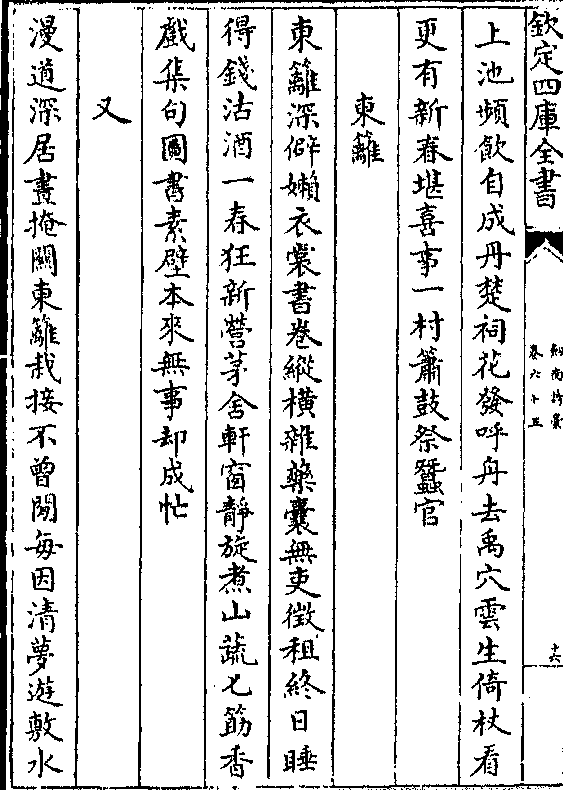 欽定四庫全書
劍南詩稾
卷六十五
十六
上池頻飲自成丹楚祠花發呼舟去禹穴雲生倚杖看
更有新春堪喜事一村簫鼓祭蠶官
東籬
東籬深僻嬾衣裳書卷縱横雜藥囊無吏徵租終日睡
得錢沽酒一春狂新營茅舍軒窗靜旋煮山蔬匕筯香
戲集句圖書素壁本來無事却成忙
又
漫道深居晝掩關東籬栽接不曾閒每因清夢遊敷水